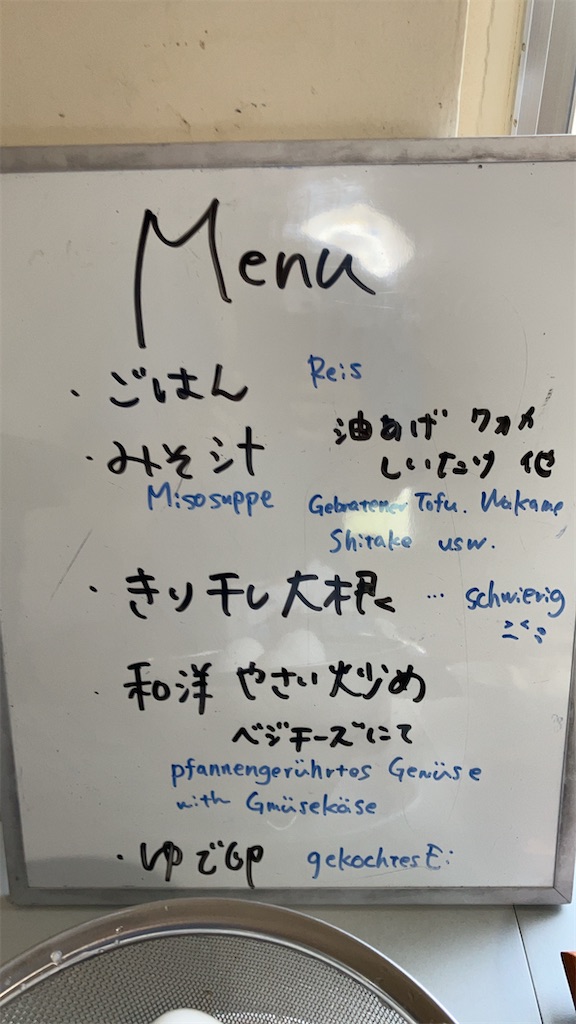 Menu
・ごはん Reis
・みそ汁 油あげ ワカメ
しいたけ 他
Misosuppe Gebratener Tofu. Wakame
Shitake usw.
・きり干し大根 … schwierig
・和洋 やさい炒め
ベジチーズにて
pfannengerührtos Gemüse
with Gmüsekäse
・ゆで卵 gekochtes Ei